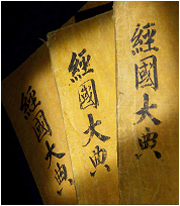 經國大典
經國大典
經國大典